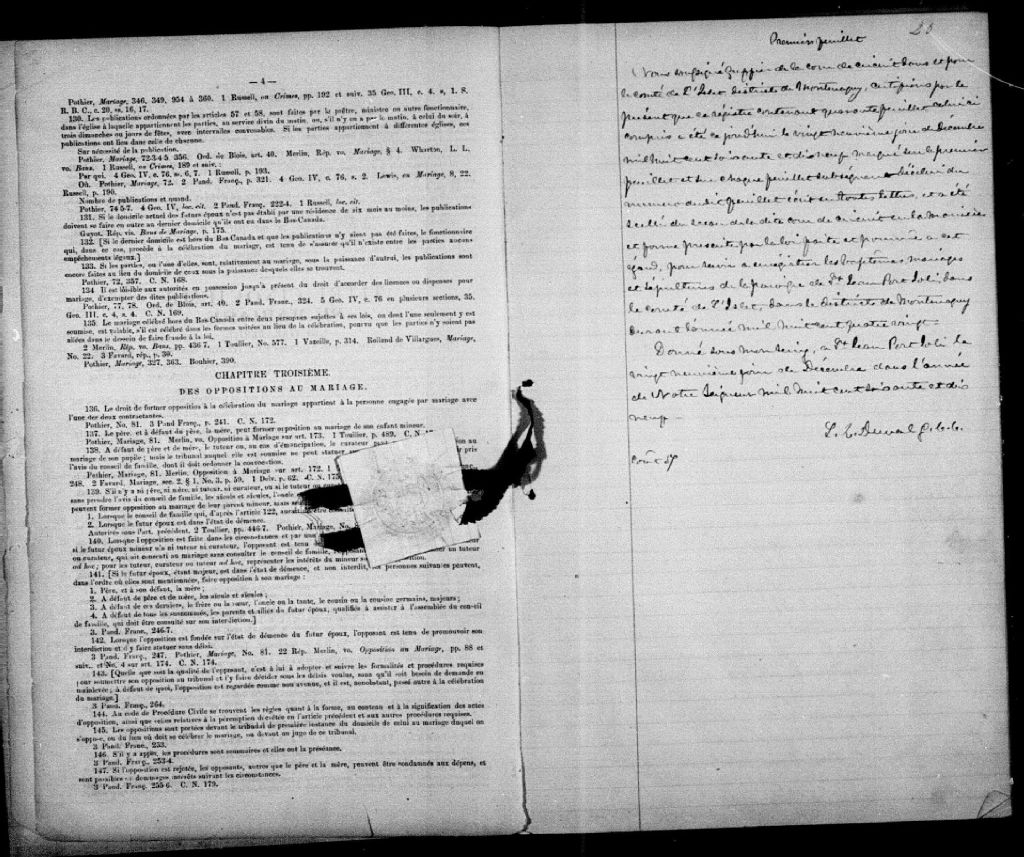 — 4 —
Pothier, Mariage, 346, 349, 954 à 360. 1 Russell, on Crimes, pp. 192 et suiv. 35 Geo. III, c. 4. s, 1. S.
R. B. C., c. 20, ss, 16, 17.
130. Les publications ordonnées par les articles 57 et 58, sont faites par le prêtre, ministre ou autre fonctionnaire,
dans l'église à laquelle appartiennent les parties, au service divin du matin, ou, s'il n'y en a pas le matin, à celui du soir, à
trois dimanches ou jours de fêtes, avec intervalles convenables. Si les parties appartiennent à différentes églises, ces
publications ont lieu dans celle de chacune.
Sur nécessité de la publication.
Pothier, Mariage, 72-3-4-5 356. Ord. de Blois, art. 40. Merlin, Rép. vo. Mariage, § 4. Wharton, L. L,
vo. Bans. 1 Russell, on Crimes, 189 et suiv.:
Par qui. 4 Geo. IV, c. 76, ss. 6, 7. 1 Russell, p. 193.
Où. Pothier, Mariage, 72. 2 Pand. Franç., p. 321. 4 Geo. IV, c. 76, s. 2. Lewis, on Mariage, 8, 22.
Russell, p. 190.
Nombre de publications et quand.
Pothier, 74 5-7. 4 Geo. IV, loc. cit. 2 Pand. Franç. 222-4. 1 Russell, loc. cit.
131. Si le domicile actuel des futurs époux n'est pas établi par une résidence de six mois au moins, les publications
doivent se faire en outre au dernier domicile qu'ils ont eu dans le Bas-Canada.
Guyot. Rép. vis. Bans de Mariage, p. 175.
132. [Si le dernier domicile est hors du Bas-Canada et que les publications n'y aient pas été faites, le fonctionnaire
qui, dans ce cas, procède à la célébration du mariage, est tenu de s'assurer qu'il n'existe entre les parties aucuns
empêchements légaux.]
133. Si les parties, ou l'une d'elles, sont, relativement au mariage, sous la puissance d'autrui, les publications sont
encore faites au lieu du domicile de ceux sous la puissance desquels elles se trouvent.
Pothier, 72, 357. C. N. 168.
134 Il est loisible aux autorités en possession jusqu'à présent du droit d'accorder des licences ou dispenses pour
mariage, d'exempter des dites publications.
Pothier, 77, 78. Ord. de Blois, art. 40. 2 Pand. Franç., 324. 5 Geo. IV, c. 76 en plusieurs sections, 35.
Geo. III. c. 4, s. 4. C. N. 169.
135. Le mariage célébré hors du Bas-Canada entre deux personnes sujettes à ses lois, ou dont l'une seulement y est
soumise, est valable, s'il est célébré dans les formes usitées au lieu de la célébration, pourvu que les parties n'y soient pas
allées dans le dessein de faire fraude à la loi.
2 Merlin, Rép. vo. Bans, pp. 436 7. 1 Toullier, No. 577. 1 Vazeille, p. 314. Rolland de Villargues, Mariage,
No. 22. 3 Favard, rép., p. 39.
Pothier, Mariage, 327, 363. Bouhier, 390.
CHAPITRE TROISIÈME.
DES OPPOSITIONS AU MARIAGE.
136. Le droit de former opposition à la célébration du mariage appartient à la personne engagée par mariage avec
l'une des deux contractantes.
Pothier, No. 81. 3 Pand Franç., p. 241. C. N. 172.
137. Le père, et à défaut du père, la mère, peut former opposition au mariage de son enfant mineur.
Pothier, Mariage, 81. Merlin, vo. Opposition à Mariage sur art. 173. 1 Toullier, p. 489. C. N.
138. A défaut de père et de mère, le tuteur ou, au cas d'émancipation, le curateur peut
mariage de son pupille; mais le tribunal auquel elle est soumise ne peut statuer
l'avis du conseil de famille, dont il doit ordonner la convocation.
Pothier, Mariage, 81. Merlin, Opposition à Mariage sur art. 172. 1
248. 2 Favard, Mariage, sec. 2, § 1, No. 3, p. 59. 1 Delv. p. 62. C. N. 175
139. S'il n'y a ni père, ni mère, ni tuteur, ni curateur, ou si le tuteur ou
sans prendre l'avis du conseil de famille, les aïeuls et aïeules, l'oncle
peuvent former opposition au mariage de leur parent mineur, mais
1. Lorsque le conseil de famille qui, d'après l'article 122, aurait dû être consulté
2. Lorsque le futur époux est dans l'état de démence.
Autorités sous l'art. précédent. 2 Toullier, pp. 446-7. Pothier, Mariage, No.
140. Lorsque opposition est faite dans les circonstances et par une
si le futur époux mineur n'a ni tuteur ni curateur, l'opposant est tenu de
ou curateur, qui ait consenti au mariage sans consulter le conseil de famille,
ad hoc; pour les tuteur, curateur ou tuteur ad hoc, représenter les intérêts du mineur
141. [Si le futur époux, étant majeur, est dans l'état de démence, et non interdit, les personnes suivantes peuvent,
dans l'ordre où elles sont mentionnées, faire opposition à son mariage:
1. Père, et à son défaut, la mère;
2. A défaut de père et de mère, les aïeuls et aïeules;
3. A défaut de ces derniers, le frère ou la sœur, l'oncle ou la tante, le cousin ou la cousine germains, majeurs;
4. A défaut de tous les susnommés, les parents et alliés du futur époux, qualifiés à assister à l'assemblée du conseil
de famille, qui doit être consulté sur son interdiction.]
3. Pand. Franc., 246-7.
142. Lorsque l'opposition est fondée sur l'état de démence du futur époux, l'opposant est tenu de promouvoir son
interdiction et d'y faire statuer sans délai.
3 Pand. Franç., 247. Pothier, Mariage, No. 81. 22 Rép. Merlin, vo. Opposition au Mariage, pp. 88 et
suiv. et No. 4 sur art. 174. C. N. 174.
143. [Quelle que soit la qualité de l'opposant, c'est à lui à adopter et suivre les formalités et procédures requises
pour soumettre son opposition au tribunal et l'y faire décider sous les délais voulus, sans qu'il soit besoin de demande en
mainlevée; à défaut de quoi, l'opposition est regardée comme non avenue, et il est, nonobstant, passé outre à la célébration
du mariage.]
3 Pand. Franç., 264.
144. Au code de Procédure Civile se trouvent les règles quant à la forme, au contenu et à la signification des actes
d'opposition, ainsi que celles relatives à la péremption décrétée en l'article précédent et aux autres procédures requises.
145. Les oppositions sont portées devant le tribunal de première instance du domicile de celui au mariage duquel on
s'oppose, ou du lieu où doit se célébrer le mariage, ou devant un juge de ce tribunal.
3 Pand. Franc., 253.
146. S'il y a appel, les procédures sont sommaires et elles ont la préséance.
3 Pand. Franç., 253-4.
147. Si l'opposition est rejetée, les opposants, autres que le père et la mère, peuvent être condamnés aux dépens, et
sont passibles de dommages-intérêts suivant les circonstances.
3 Pand. Franç. 255-6. C. N. 179.
20
Premier feuillet
Nous soussigné Greffier de la cour de circuit dans et pour
le comté de L'Islet district de Montmagny, certifions par le
présent que ce régistre contenant quarante feuillet celui ci
compris a été ce jourd'hui le vingt neuvième jour de Décembre
mil huit cent soixante et dix neuf marqué sur le premier
feuillet et sur chaque feuillet subséquent
numero du dit feuillet écrit en toutes lettres, et a été
scellé du sceau de la dite cour de circuit en la manière
et forme prescrite par la loi faite et pourvue a cet
égard, pour servir a enregistrer les baptêmes, mariages
et sépultures de la paroisse de St Jean Port Joli, dans
le Comté de L'Islet, dans le district de Montmagny
durant l'année mil huit cent quatre vingt.
Donné sous mon seing, a St Jean Port Joli le
vingt neuvième jour de Décembre dans l'année
de Notre Seigneur mil huit cent soixante et dix
neuf.
Duval G. C. C.